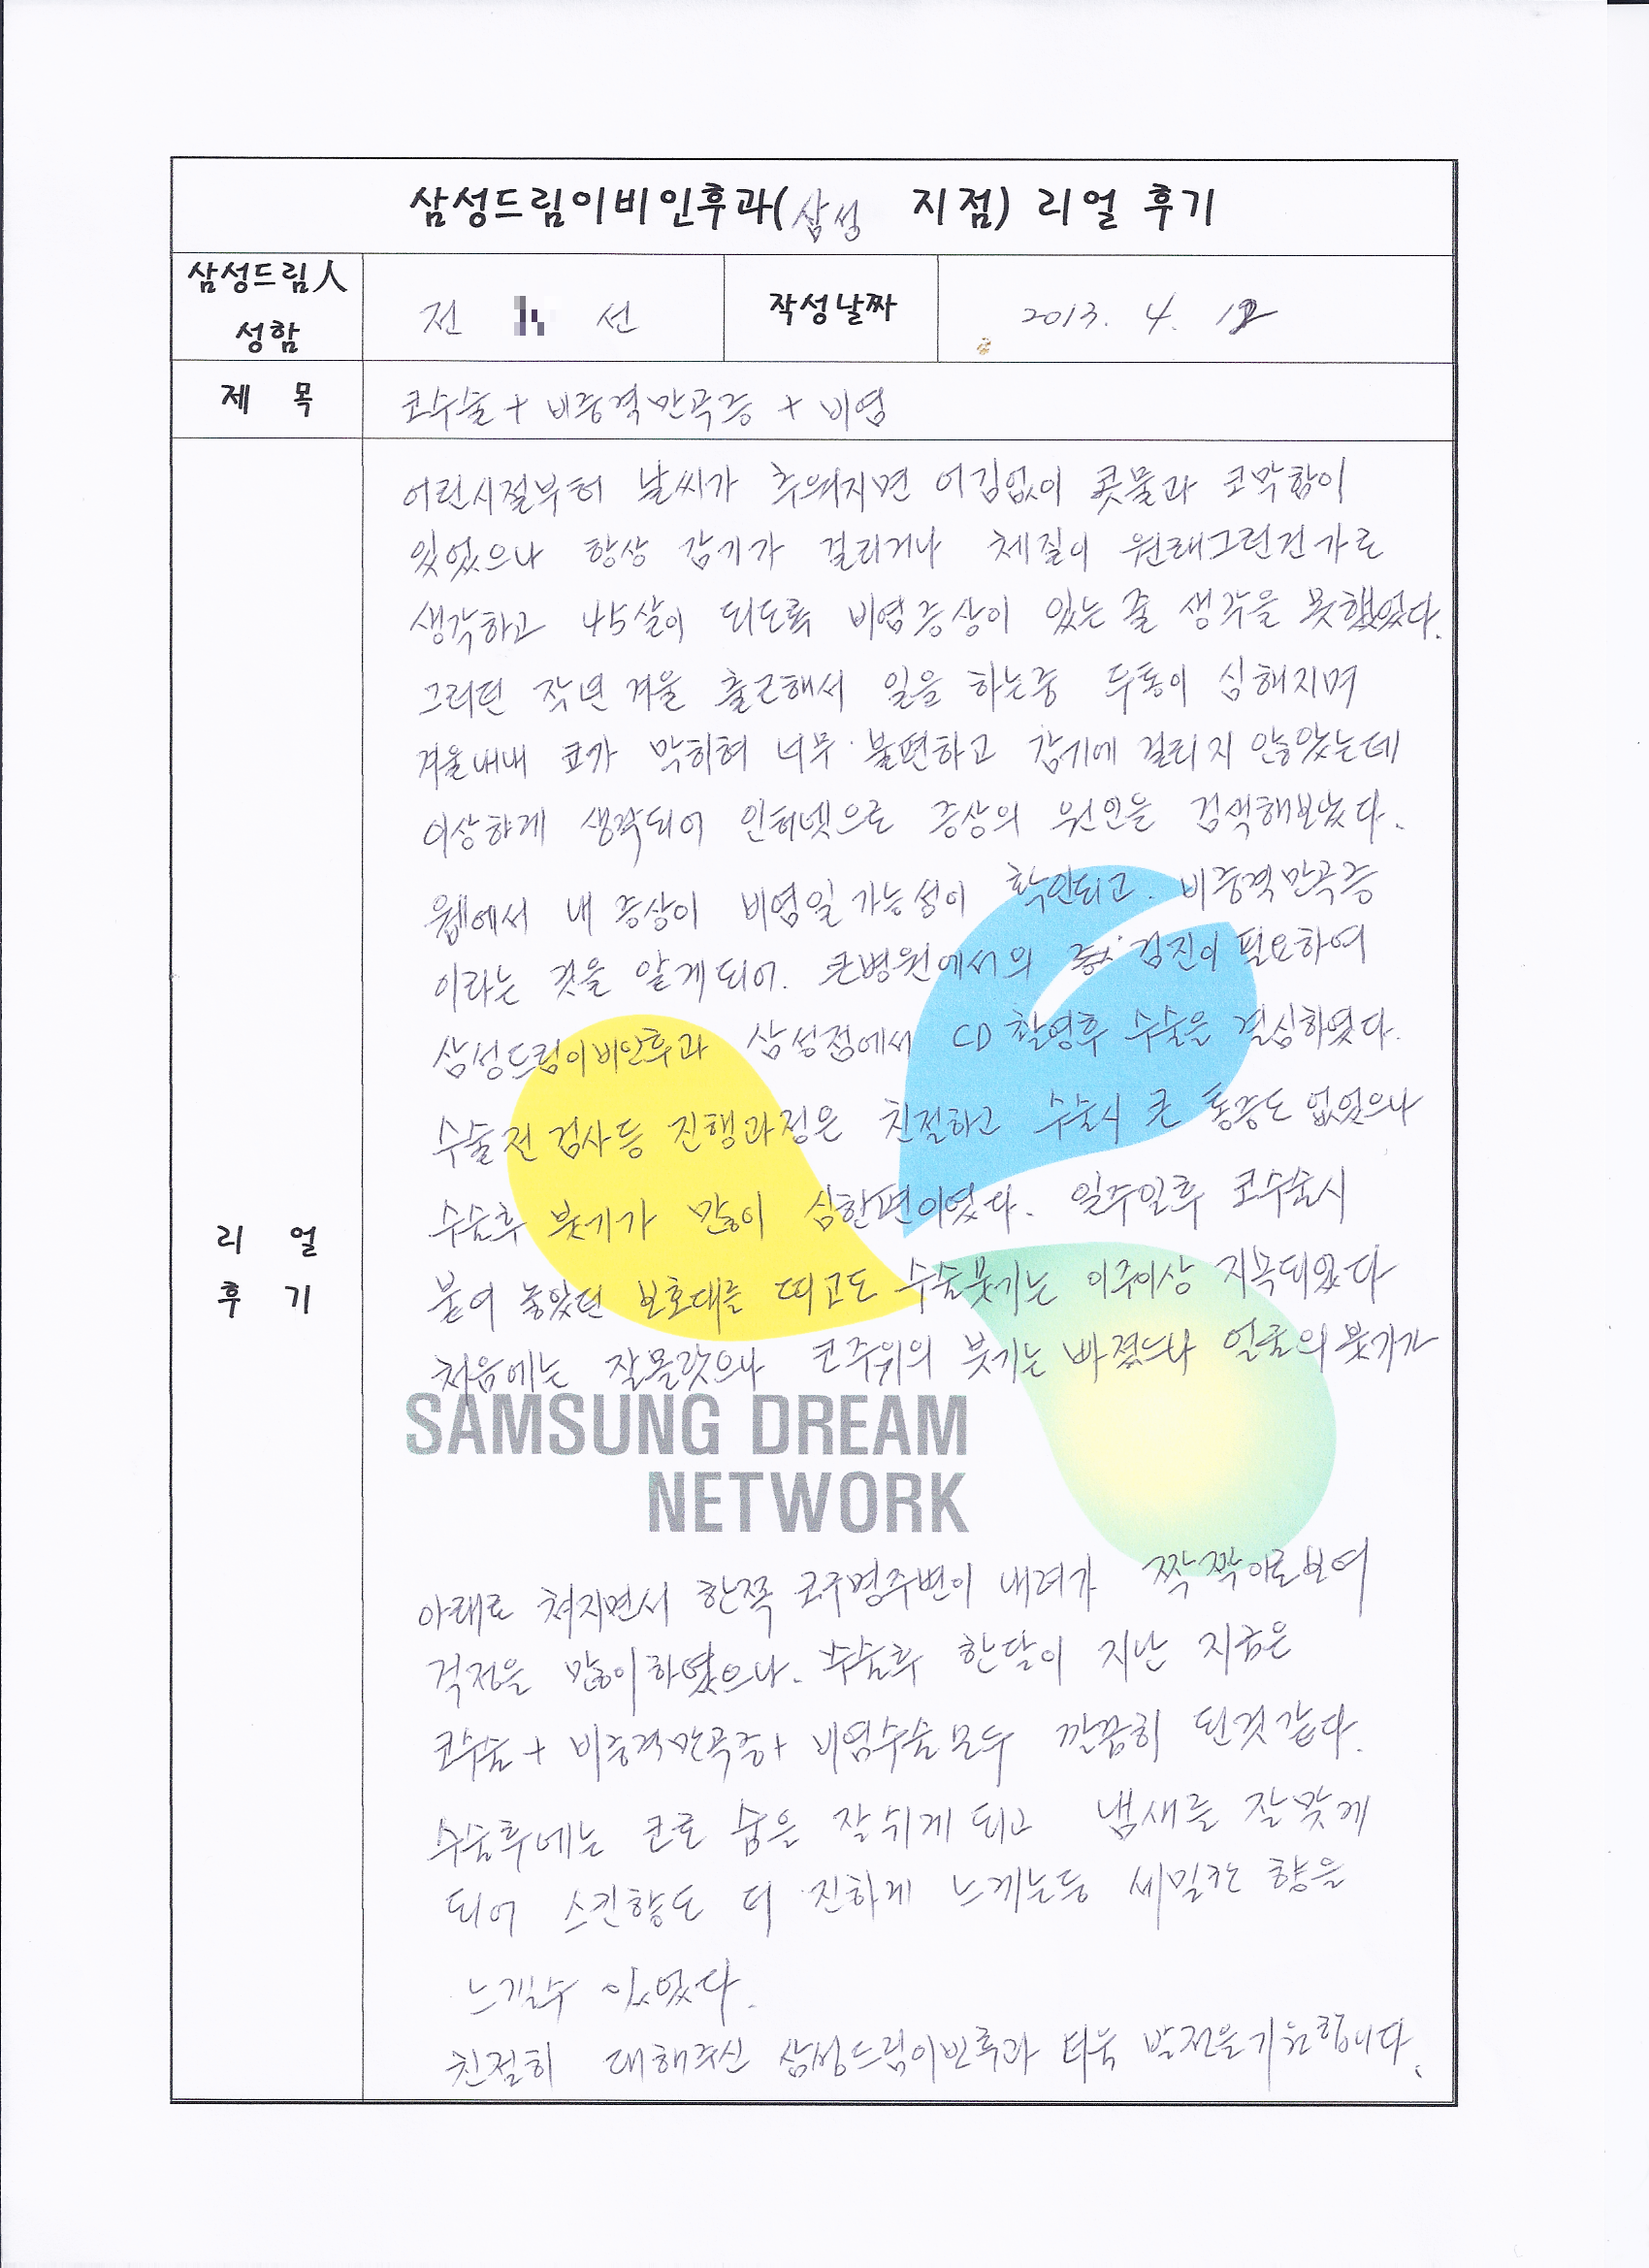 삼성드림이비인후과(삼성 지점) 리얼 후기
삼성드림人 성함
전 선
작성날짜
2013. 4. 12
제 목
코수술 + 비중격만곡증 + 비염
리 얼 후 기
어린시절부터 날씨가 추워지면 어김없이 콧물과 코막힘이
있었으나 항상 감기가 걸리거나 체질이 원래그런건가로
생각하고 45살이 되도록 비염증상이 있는 줄 생각을 못했었다.
그러던 작년 겨울 출근해서 일을 하는중 두통이 심해지며
겨울내내 코가 막히혀 너무 불편하고 감기에 걸리지 않았는데
이상하게 생각되어 인터넷으로 증상의 원인을 검색해보았다.
웹에서 내 증상이 비염일 가능성이 확인되고. 비중격만곡증
이라는 것을 알게되어. 큰병원에서의 검진이 필요하여
삼성드림이비인후과 삼성점에서 CD 촬영후 수술을 결심하였다.
수술전 검사등 진행과정은 친절하고 수술시 큰 통증도 없었으나
수술후 붓기가 많이 심한편이였다. 일주일후 코수술시
붙여 놓았던 보호대를 띠고도 수술붓기는 이주이상 지속되었다
처음에는 잘몰랏으나 코주위의 붓기는 빠졌으나 얼굴의 붓기가
SAMSUNG DREAM
NETWORK
아래로 쳐지면서 한쪽 코구멍주변이 내려가 짝짝이로보여
걱정을 많이하였으나. 수술후 한달이 지난 지금은
코수술 + 비중격만곡증 + 비염수술 모두 깔끔히 된것같다.
수술후에는 코로 숨을 잘쉬게 되고 냄새를 잘맞게
되어 스킨향도 더 진하게 느께는등 세밀한 향을
느낄수 있었다.
친절히 대해주신 삼성드림이빈후과 더욱 발전을기원합니다.